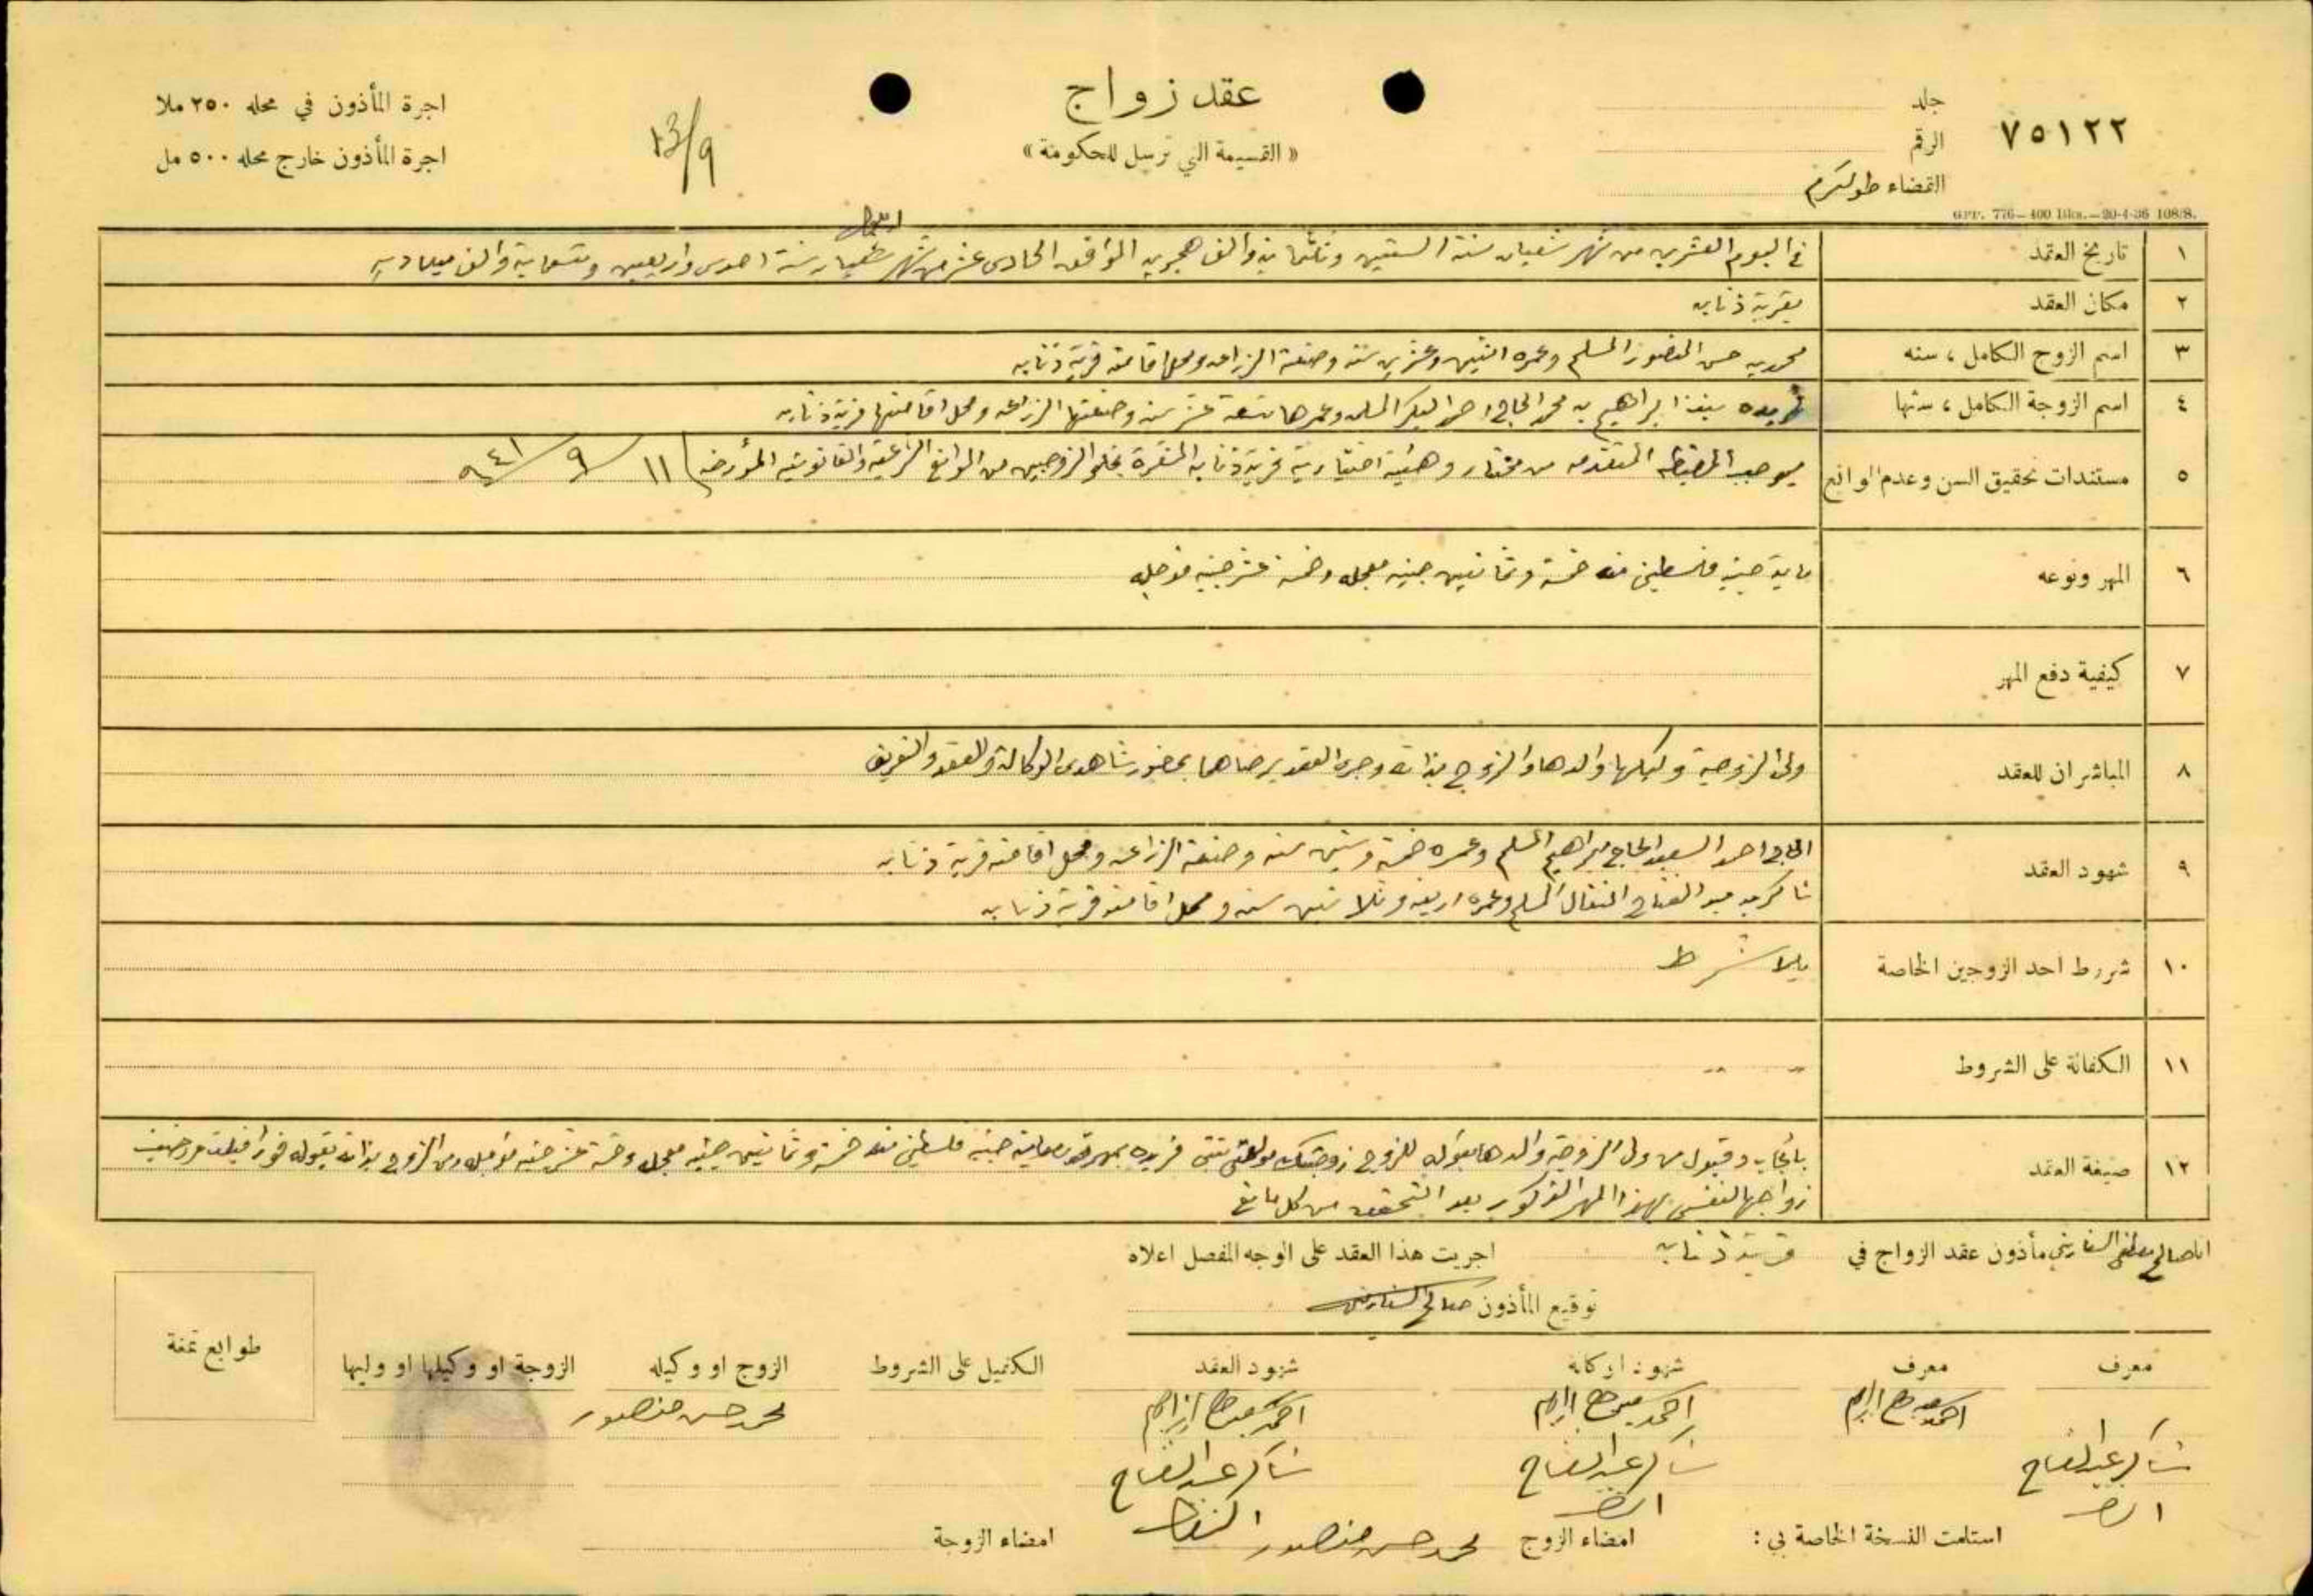 ٧٥١٢٢
جلد
الرقم
القضاء طولكرم
GPP. 776—400 Bks.—20-4-36 108/8.
عقد زواج
« القسيمة التي ترسل للحكومة »
13/9
اجرة المأذون في محله ٢٥٠ ملا
اجرة المأذون خارج محله ٥٠٠ مل
١ تاريخ العقد في اليوم العشرين من شهر شعبان سنة الستين وثلثماية والف هجريه الموافق الحادى عشر من شهر سنة احدى واربعين وتسعماية والف ميلاديه
٢ مكان العقد بقرية ذنابه
٣ اسم الزوج الكامل ، سنه محمد بن حسن المنصور المسلم وعمره اثنين وعشرين سنه وصنعته الزراعه ومحل اقامته قرية ذنابه
٤ اسم الزوجة الكامل ، سنها فريده بنت ابراهيم بن محمد الحاج احمد البكر المسلمه وعمرها تسعة عشر سنه وصنعتها الزراعه ومحل اقامتها قرية ذنابه
٥ مستندات تحقيق السن وعدم الموانع بموجب المضبطه المتقدمه من مختار وهيئة اختيارية قرية ذنابه المشعرة بخلو الزوجين من الموانع الشرعيه والقانونيه المؤرخه ١١/٩/٩٤١
٦ المهر ونوعه ماية جنيه فلسطيني منه خمسة وثمانين جنيه معجله وخمسة عشر جنيه مؤجله
٧ كيفية دفع المهر
٨ المباشران للعقد ولي الزوجية وكيلها والدها والزوج بذاته وجرى العقد برضاهما بحضور شاهدى الوكالة والعقد والتعريف
٩ شهود العقد الحاج احمد السعيد الحاج ابراهيم المسلم وعمره خمسة وستين سنه وصنعته الزراعه ومحل اقامته قرية ذنابه
شاكر بن عبد الفتاح المسلم وعمره اربعه وثلاثين سنه ومحل اقامته قرية ذنابه
١٠ شروط احد الزوجين الخاصة بلا شرط
١١ الكفالة على الشروط
١٢ صيغة العقد بايجاب وقبول من ولي الزوجية والدها بقوله للزوج زوجتك بنتي فريده بمهر ماية جنيه فلسطيني منه خمسة وثمانين جنيه معجله وخمسة عشر جنيه مؤجله ومن الزوج بذاته بقوله فورا قبلت ورضيت
زواجها لنفسي بهذا المهر المذكور بعد التحقق من كل مانع
انا صالح مصطفى السفاريني مأذون عقد الزواج في قرية ذنابه اجريت هذا العقد على الوجه المفصل اعلاه
توقيع المأذون صالح السفاريني
معرف معرف شهود الوكالة شهود العقد الكفيل على الشروط الزوج او وكيله الزوجة او وكيلها او وليها طوابع تمغة
شاكر عبد الفتاح
احمد سعيد حاج ابراهيم
احمد سعيد حاج ابراهيم
شاكر عبد الفتاح
احمد سعيد حاج ابراهيم
شاكر عبد الفتاح
محمد حسن منصور
استلمت النسخة الخاصة بي : امضاء الزوج محمد حسن منصور امضاء الزوجة